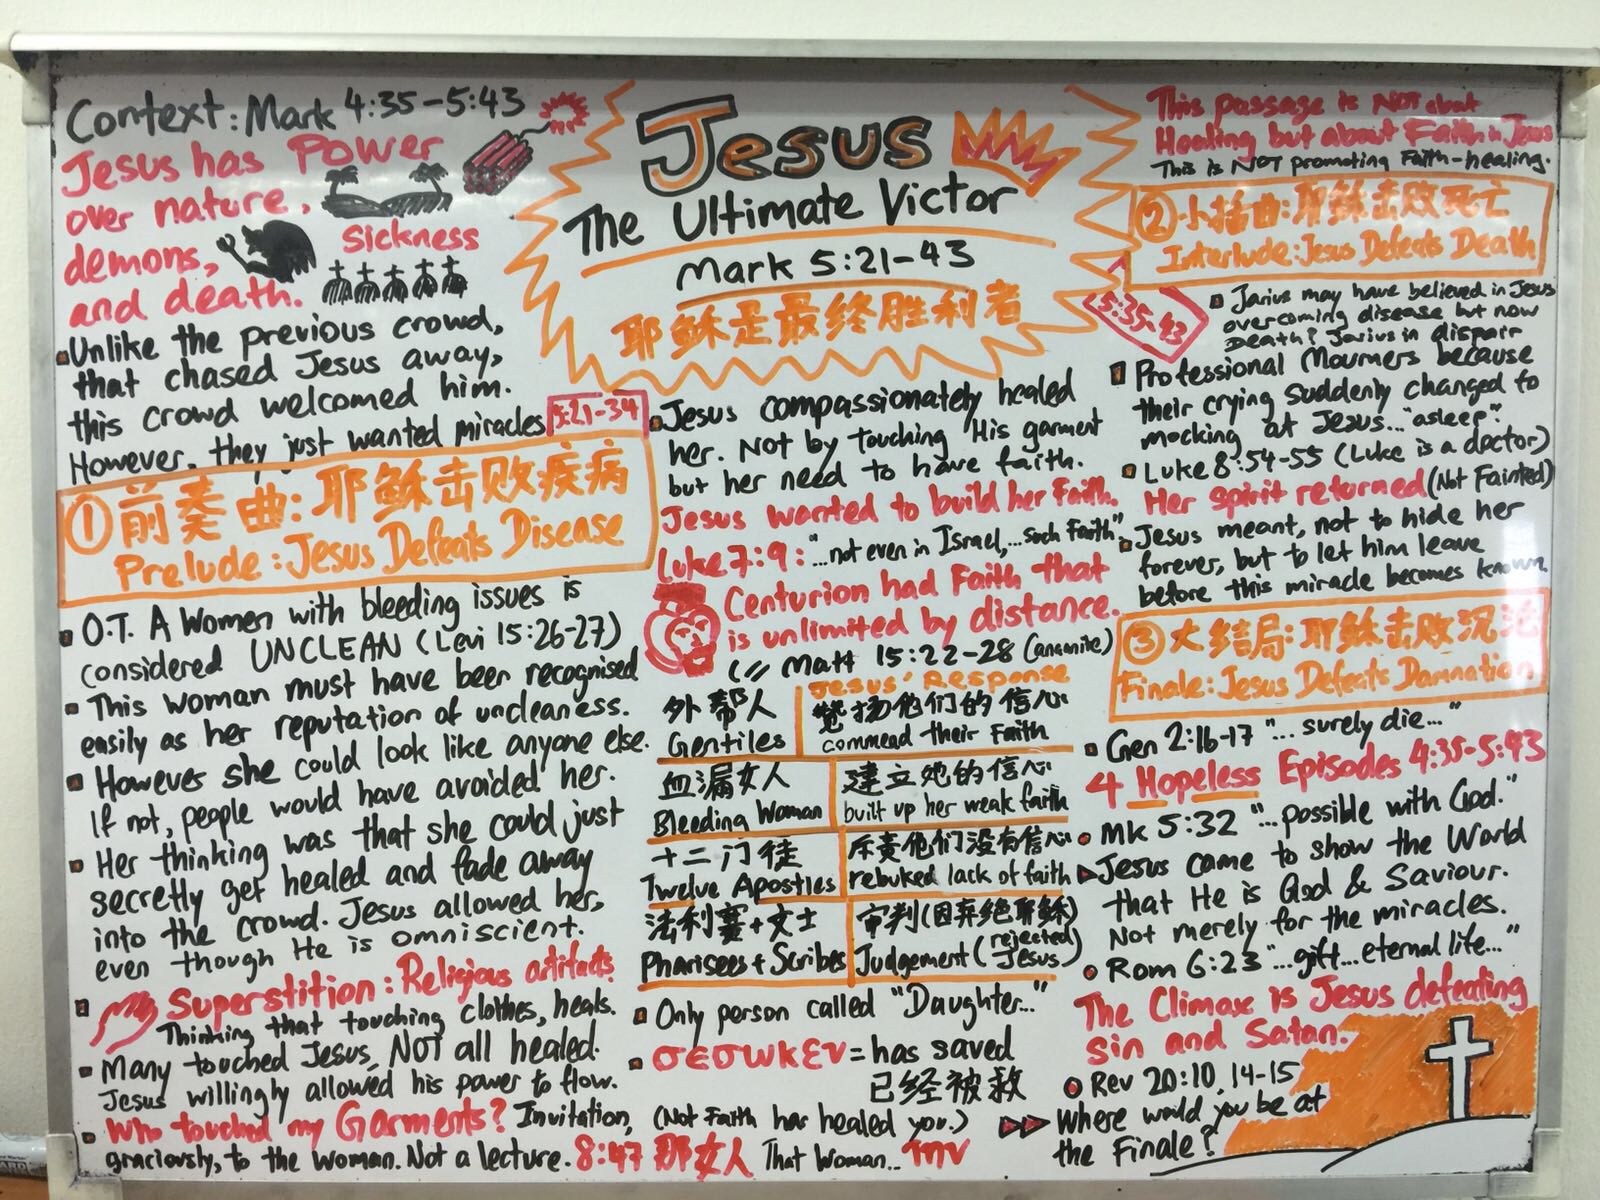 Context: Mark 4:35-5:43
Jesus has Power
over nature,
demons, Sickness
and death.
Unlike the previous crowd,
that chased Jesus away,
this crowd welcomed him.
However, they just wanted miracles
5:21-34
①前奏曲:耶稣击败疾病
Prelude: Jesus Defeats Disease
O.T. A Women with bleeding issues is
considered UNCLEAN (Levi 15:26-27)
This woman must have been recognised
easily as her reputation of uncleaness.
However she could look like anyone else.
If not, people would have avoided her.
Her thinking was that she could just
secretly get healed and fade away
into the crowd. Jesus allowed her,
even though He is omniscient.
Superstition: Religious artifacts
Thinking that touching clothes, heals.
Many touched Jesus, NOT all healed.
Jesus willingly allowed his power to flow.
Who touched my Garments? Invitation,
graciously, to the woman. Not a lecture. 8:47 那女人 That Woman..
Jesus
The Ultimate Victor
Mark 5:21-43
耶稣是最终胜利者
Jesus compassionately healed
her. Not by touching His garment
but her need to have faith.
Jesus wanted to build her Faith.
Luke 7:9: "...not even in Israel,...such Faith"
Centurion had Faith that
is unlimited by distance.
(// Matt 15:22-28
Jesus' Response
外帮人 赞扬他们的信心
Gentiles commend their Faith
血漏女人 建立她的信心
Bleeding Woman built up her weak faith
十二门徒 斥责他们没有信心
Twelve Apostles rebuked lack of faith
法利赛+文士 审判(因弃绝耶稣)
Pharisees + Scribes Judgement (rejected Jesus)
Only person called "Daughter..."
σεσωκεν = has saved
已经被救
(Not Faith has healed you.)
This passage is NOT about
Healing but about Faith in Jesus
This is NOT promoting Faith-healing.
②小插曲:耶稣击败死亡
Interlude: Jesus Defeats Death
5:35-43
Jarius may have believed in Jesus
overcoming disease but now
Death? Jarius in dispair
Professional Mourners because
their crying suddenly changed to
mocking at Jesus..."asleep".
Luke 8:54-55 (Luke is a doctor)
Her spirit returned (Not Fainted)
Jesus meant, not to hide her
forever, but to let him leave
before this miracle becomes known.
③大结局:耶稣击败沉沦
Finale: Jesus Defeats Damnation
Gen 2:16-17 "... surely die..."
4 Hopeless Episodes 4:35-5:43
Mk 5:32 "...possible with God."
Jesus came to show the World
that He is God & Saviour.
Not merely for the miracles.
Rom 6:23 "...gift...eternal life..."
The Climax is Jesus defeating
Sin and Satan.
Rev 20:10, 14-15
Where would you be at
the Finale?